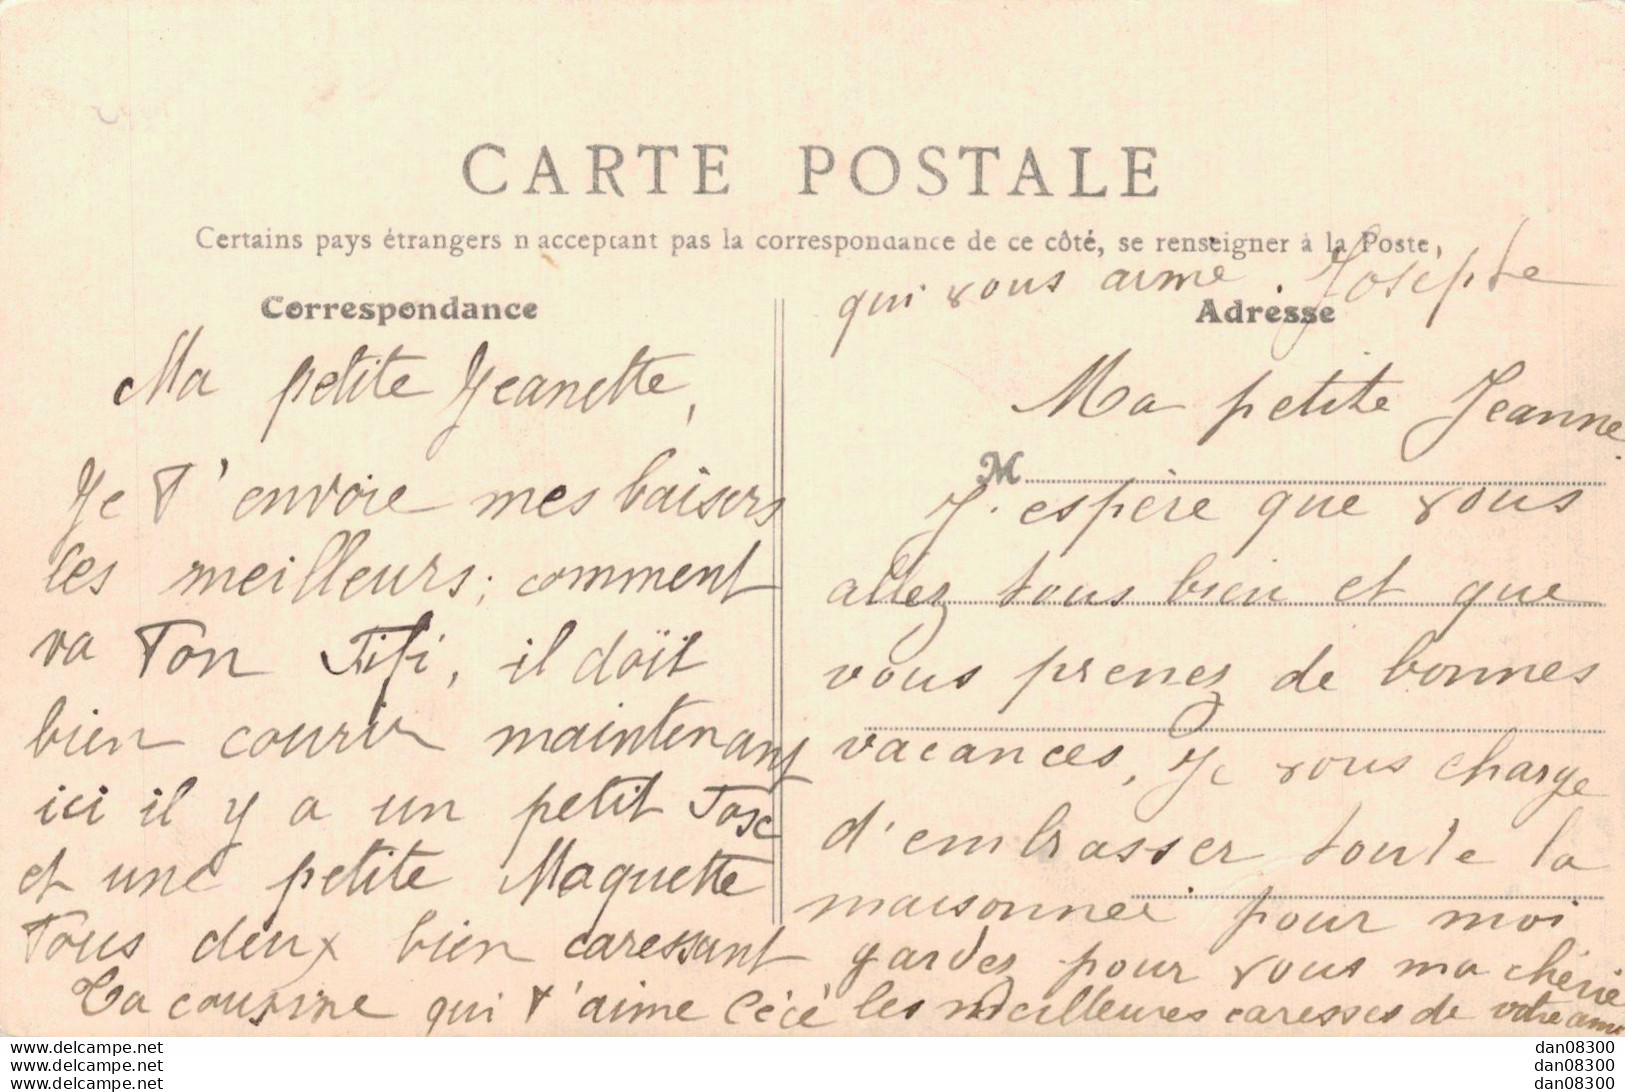 CARTE POSTALE
Certains pays étrangers n'acceptant pas la correspondance de ce côté, se renseigner à la Poste,
Correspondance
Ma petite Jeanette,
Je t'envoie mes baisers
les meilleurs; comment
va ton Fifi, il doït
bien courir maintenant
ici il y a un petit Tosc
et une petite Moquette
Tous deux bien caressant
Ta cousine qui t'aime Cécé
Adresse
Ma petite Jeanne
M
J'espère que vous
allez tous bien et que
vous prenez de bonnes
vacances, Je vous charge
d'embrasser toute la
maisonnée pour moi
gardez pour vous ma chérie
les meilleures caresses de votre amie
qui vous aime Josèphe
www.delcampe.net
www.delcampe.net
www.delcampe.net
dan08300
dan08300
dan08300